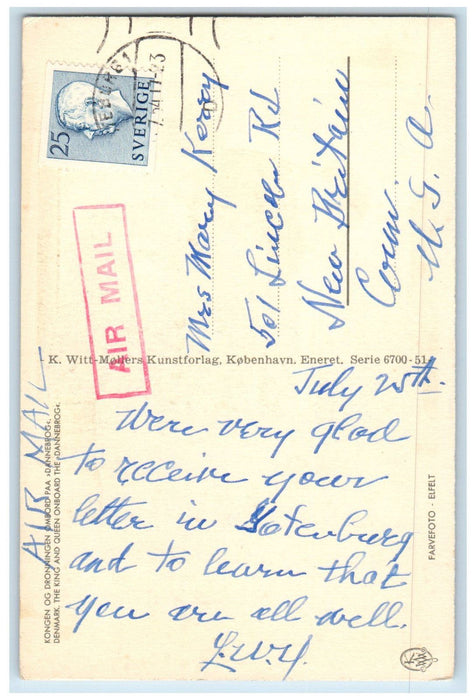 25
SVERIGE
Mrs Mary Kerry
501 Lincoln Rd
New Britain
Conn.
U. S. A.
AIR MAIL
K. Witt-Møllers Kunstforlag, København. Eneret. Serie 6700-51
July 25th.
Were very glad
to receive your
letter in Gotenburg
and to learn that
you are all well.
AIR MAIL
KONGEN OG DRONNINGEN OMBORD PAA »DANNEBROG«.
DENMARK. THE KING AND QUEEN ONBOARD THE »DANNEBROG«.
FARVEFOTO · ELFELT